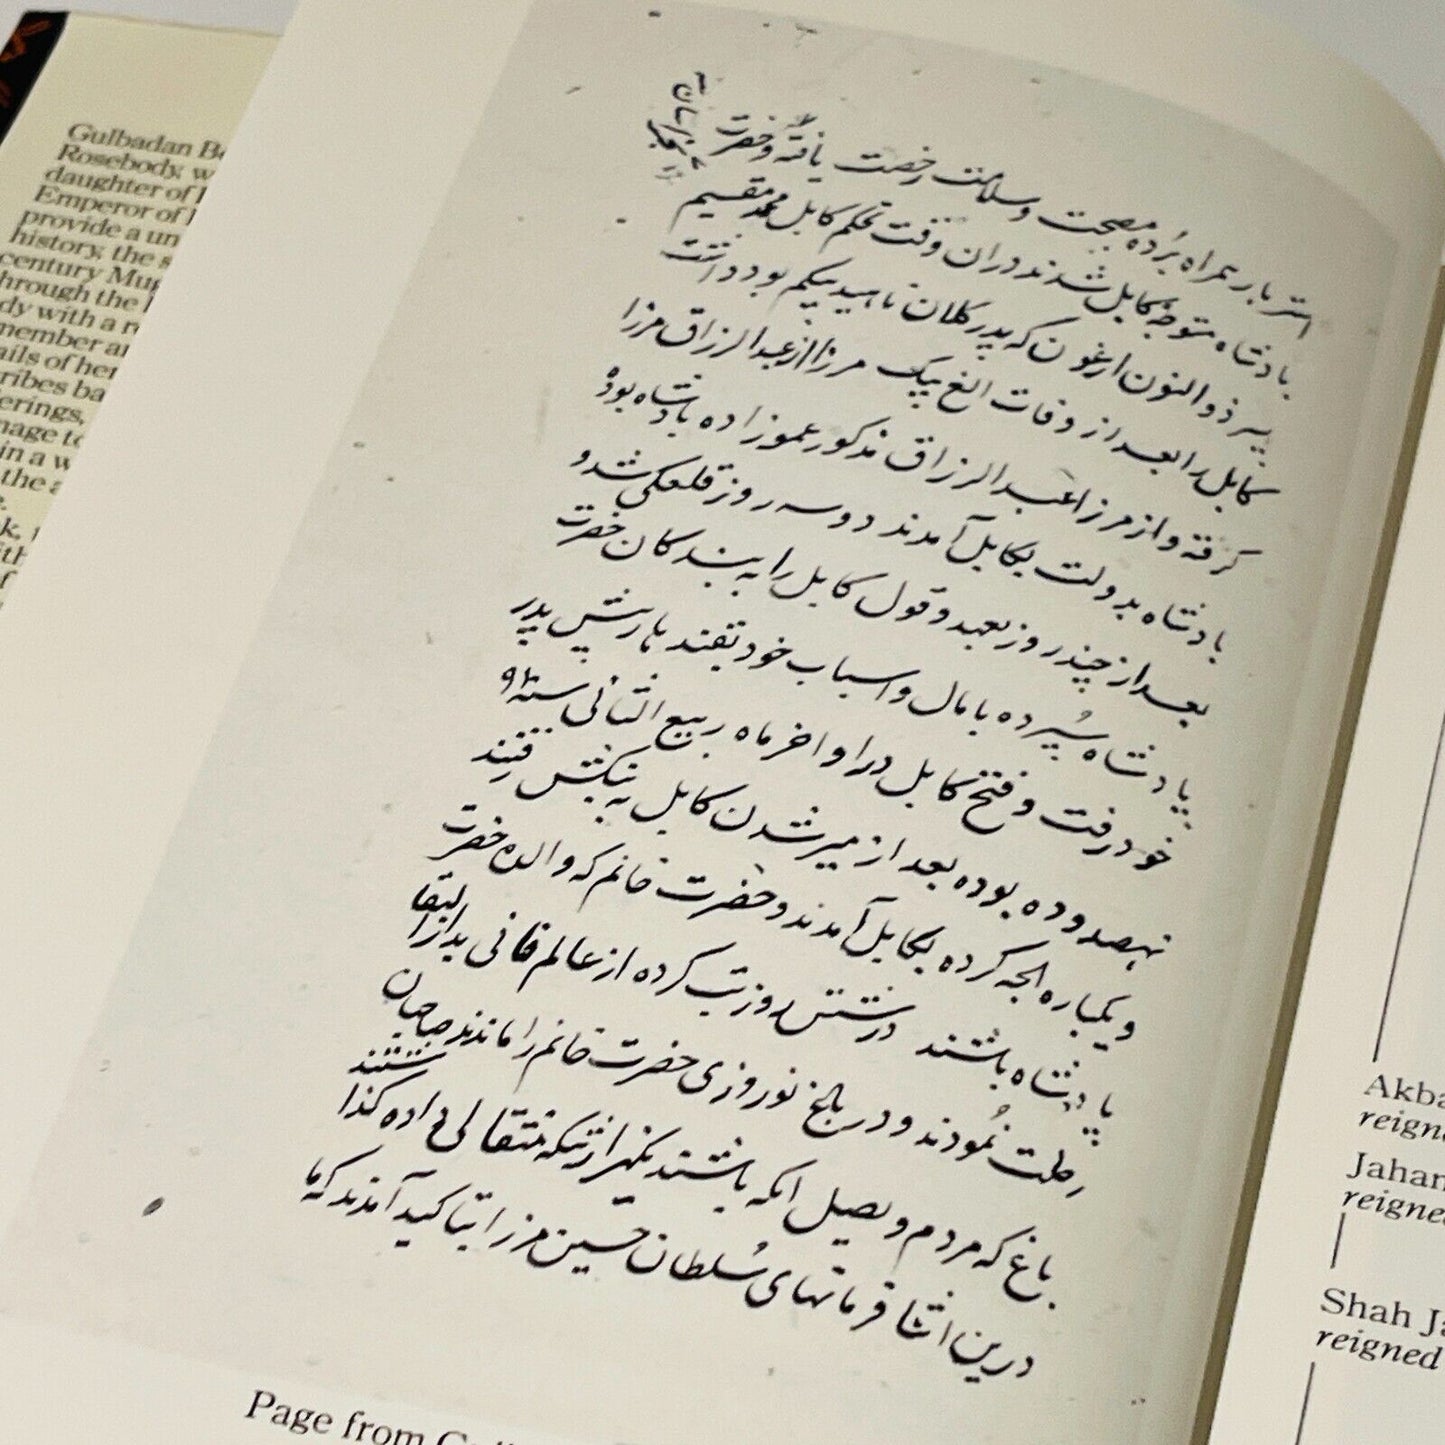 Gulbadan Be
Rosebody, w
daughter of
Emperor of
provide a un
history, the s
century Mug
hrough the
dy with a r
member a
ails of her
ribes ba
erings,
nage to
in a w
the a
k,
ith
f
استر بار همراه برُده بصحت و سلامت رخصت یافته و حضرت
بادشاه متوجهٔ کابل شدند دران وقت حکم کابل محمد مقیم
پسر ذوالنون ارغون که پدر کلان ناهید بیگم بود داشت
کابل را بعد از وفات الغ بیک مرزا از عبدالرزاق مرزا
گرفته و از مرزا عبدالرزاق مذکور عموزاده بادشاه بود
بادشاه بدولت بکابل آمدند دو سه روز قلعگی شد و
بعد از چند روز بعهد و قول کابل را به بندگان حضرت
پادشاه سُپرده با مال و اسباب خود بقندهار پیش پدر
خود رفت و فتح کابل در اواخر ماه ربیع الثانی سنه ۹۱۰
نهصد و ده بوده بعد از میر شدن کابل به بنگش رفتند
و یکباره الجه کرده بکابل آمدند و حضرت خانم که والده حضرت
پادشاه باشند در شش روز تب کرده از عالم فانی بدارالبقا
رحلت نُمودند و در باغ نوروزی حضرت خانم را ماندند صاحبان
باغ که مردم و بصیل انکه باشند یکهزار تنکه مثقالی داده گذاشتند
درین اثنا فرمانهای سُلطان حسین مرزا بتاکید آمدند که ما
Page from Gul
Akba
reigne
Jahan
reigne
Shah Ja
reigned